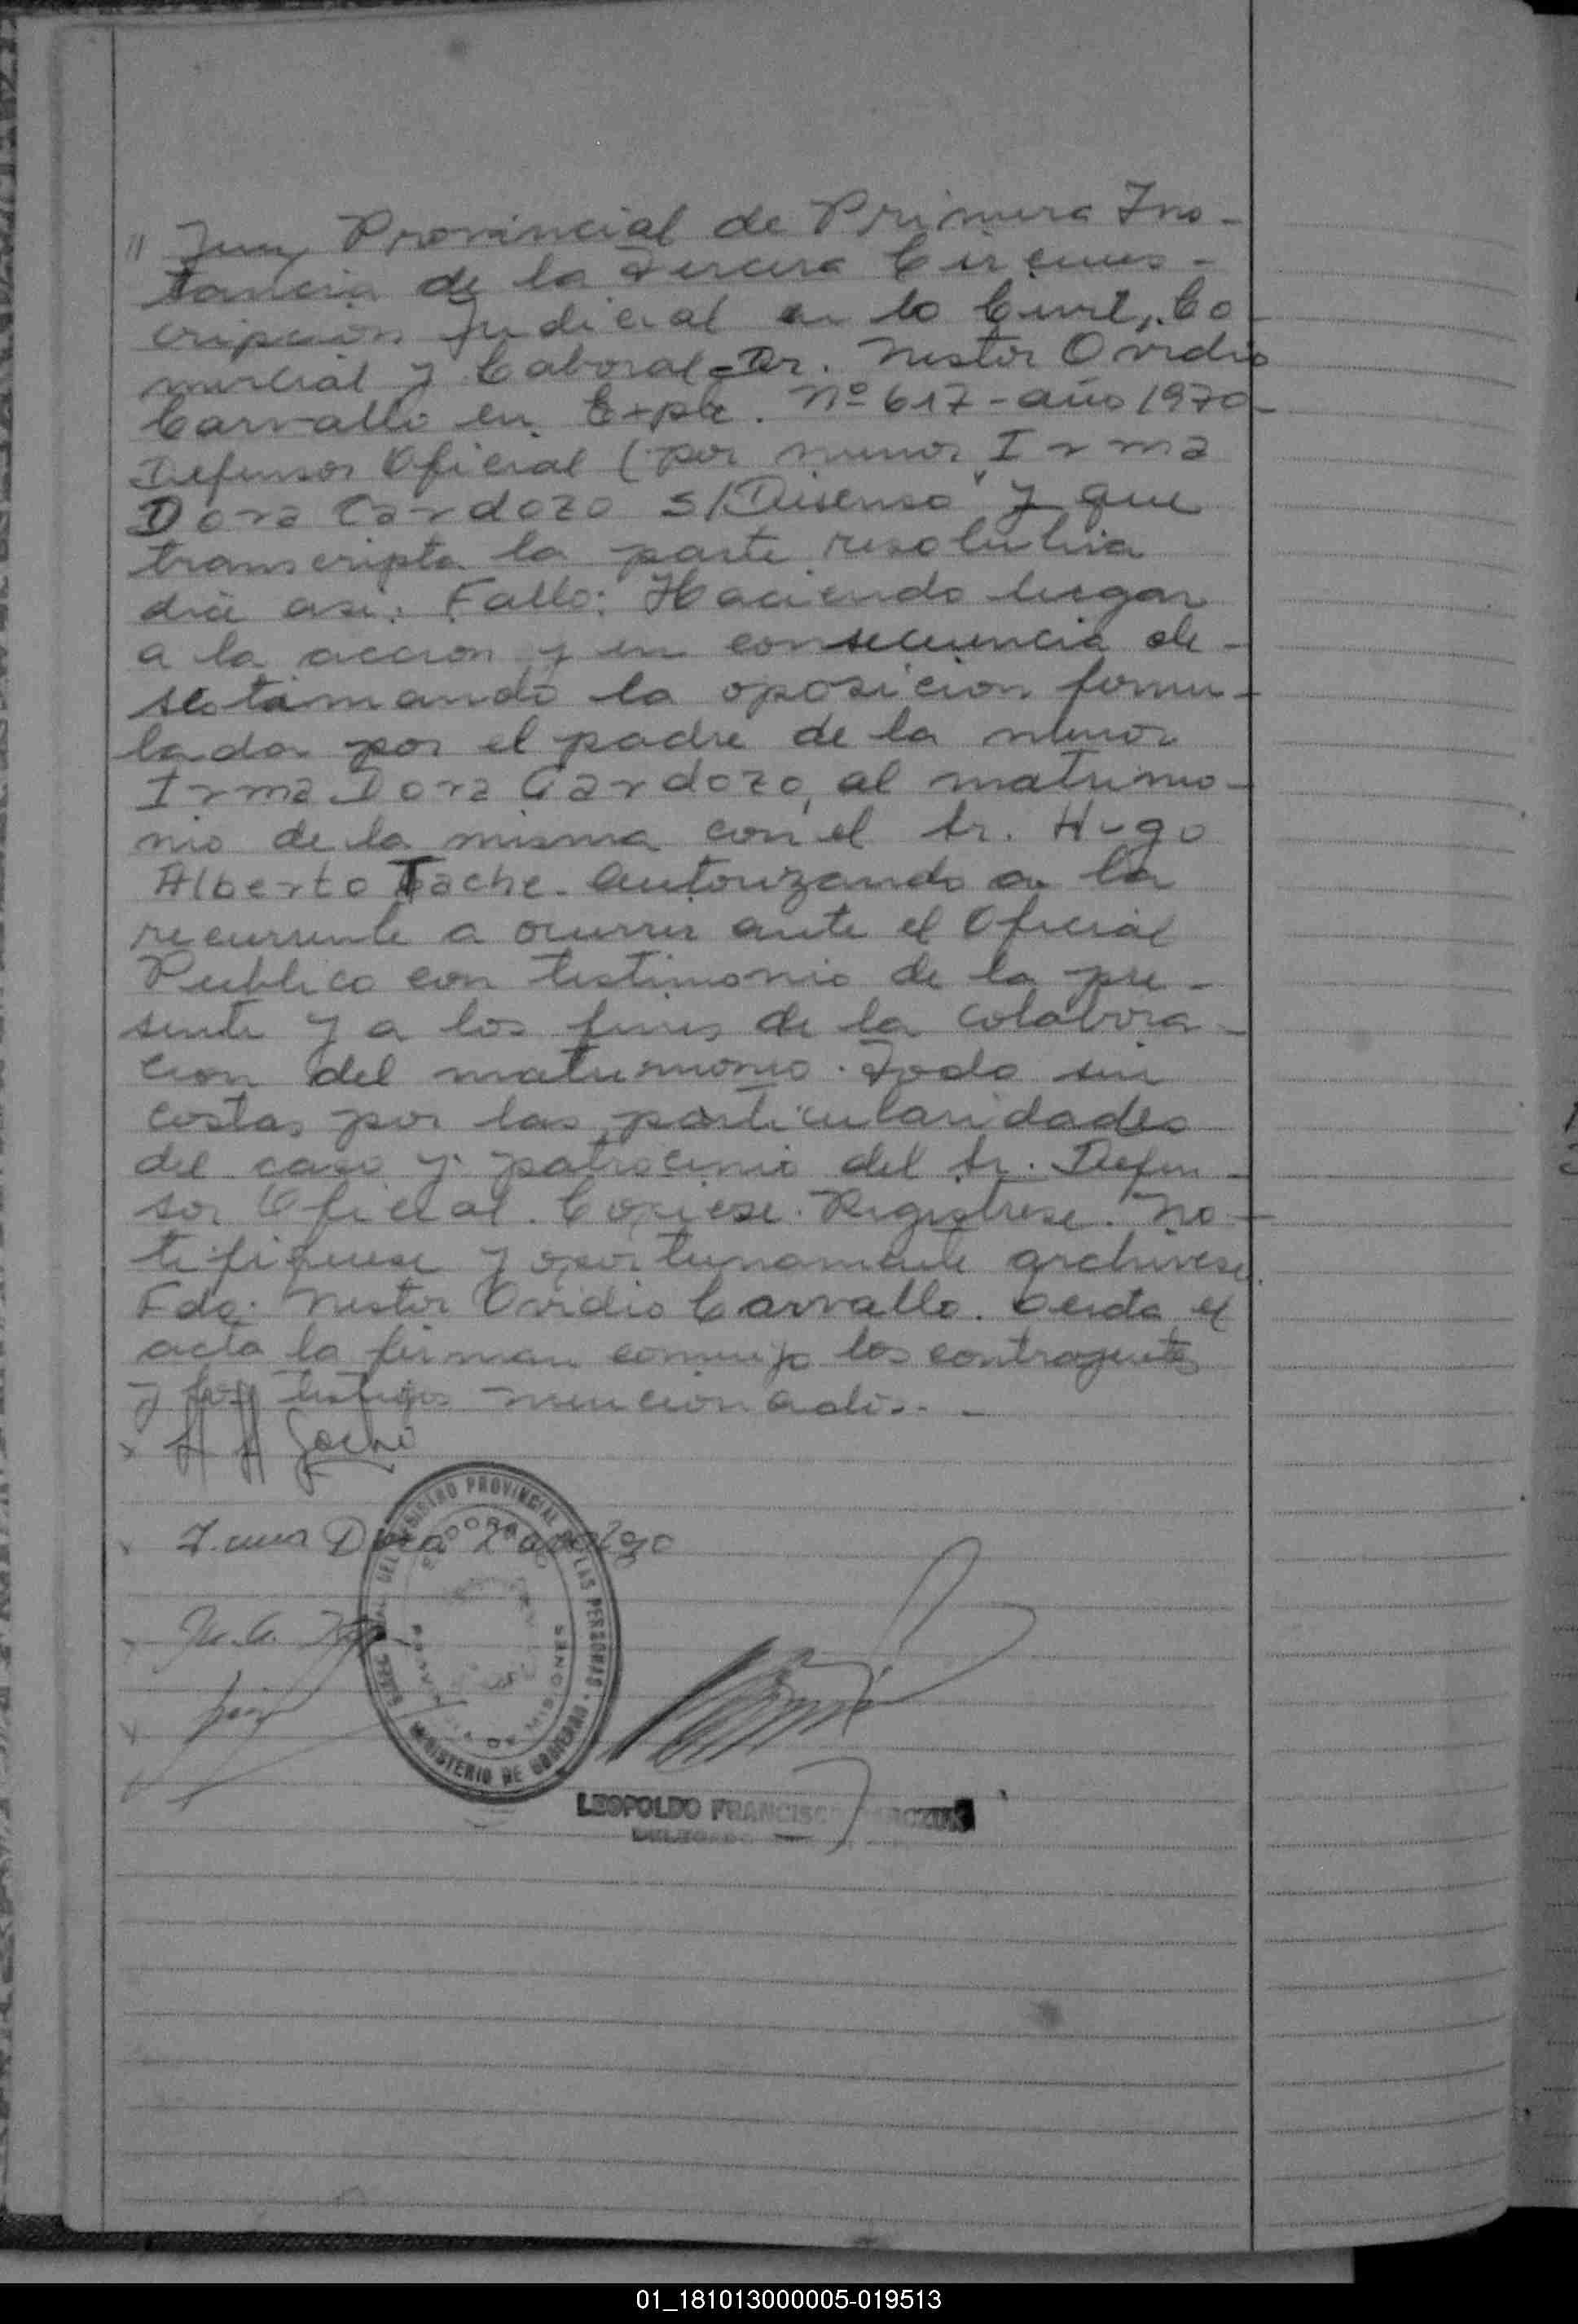 " Juez Provincial de Primera Ins-
tancia de la Tercera Circuns-
cripcion Judicial en lo Civil, Co
mercial y Laboral Dr. Nestor Ovidio
Carvallo en Expte. Nº 617 - año 1970-
Defensor Oficial (por menor Irma
Dora Cardozo S/Disenso" y que
transcripta la parte resolutiva
dice asi: Fallo: Haciendo lugar
a la accion y en consecuencia de-
sestimando la oposicion formu-
lada por el padre de la menor
Irma Dora Cardozo, al matrimo-
nio de la misma con el Sr. Hugo
Alberto Tache. Autorizando a la
recurrente a ocurrir ante el Oficial
Publico con testimonio de la pre-
sente y a los fines de la colabora-
cion del matrimonio. Todo sin
costas por las particularidades
del caso y patrocinio del Sr. Defen-
sor Oficial. Copiese. Registrese. No-
tifiquese y oportunamente archivese.
Fdo: Nestor Ovidio Carvallo. Leida el
acta la firman conmigo los contrayentes
y los testigos mencionados. -
x
x Irma Dora Cardozo
DEL REGISTRO PROVINCIAL DE LAS PERSONAS
MINISTERIO DE GOBIERNO
ELDORADO
PROVINCIA DE MISIONES
LEOPOLDO FRANCISCO
DELEGADO
01_181013000005-019513